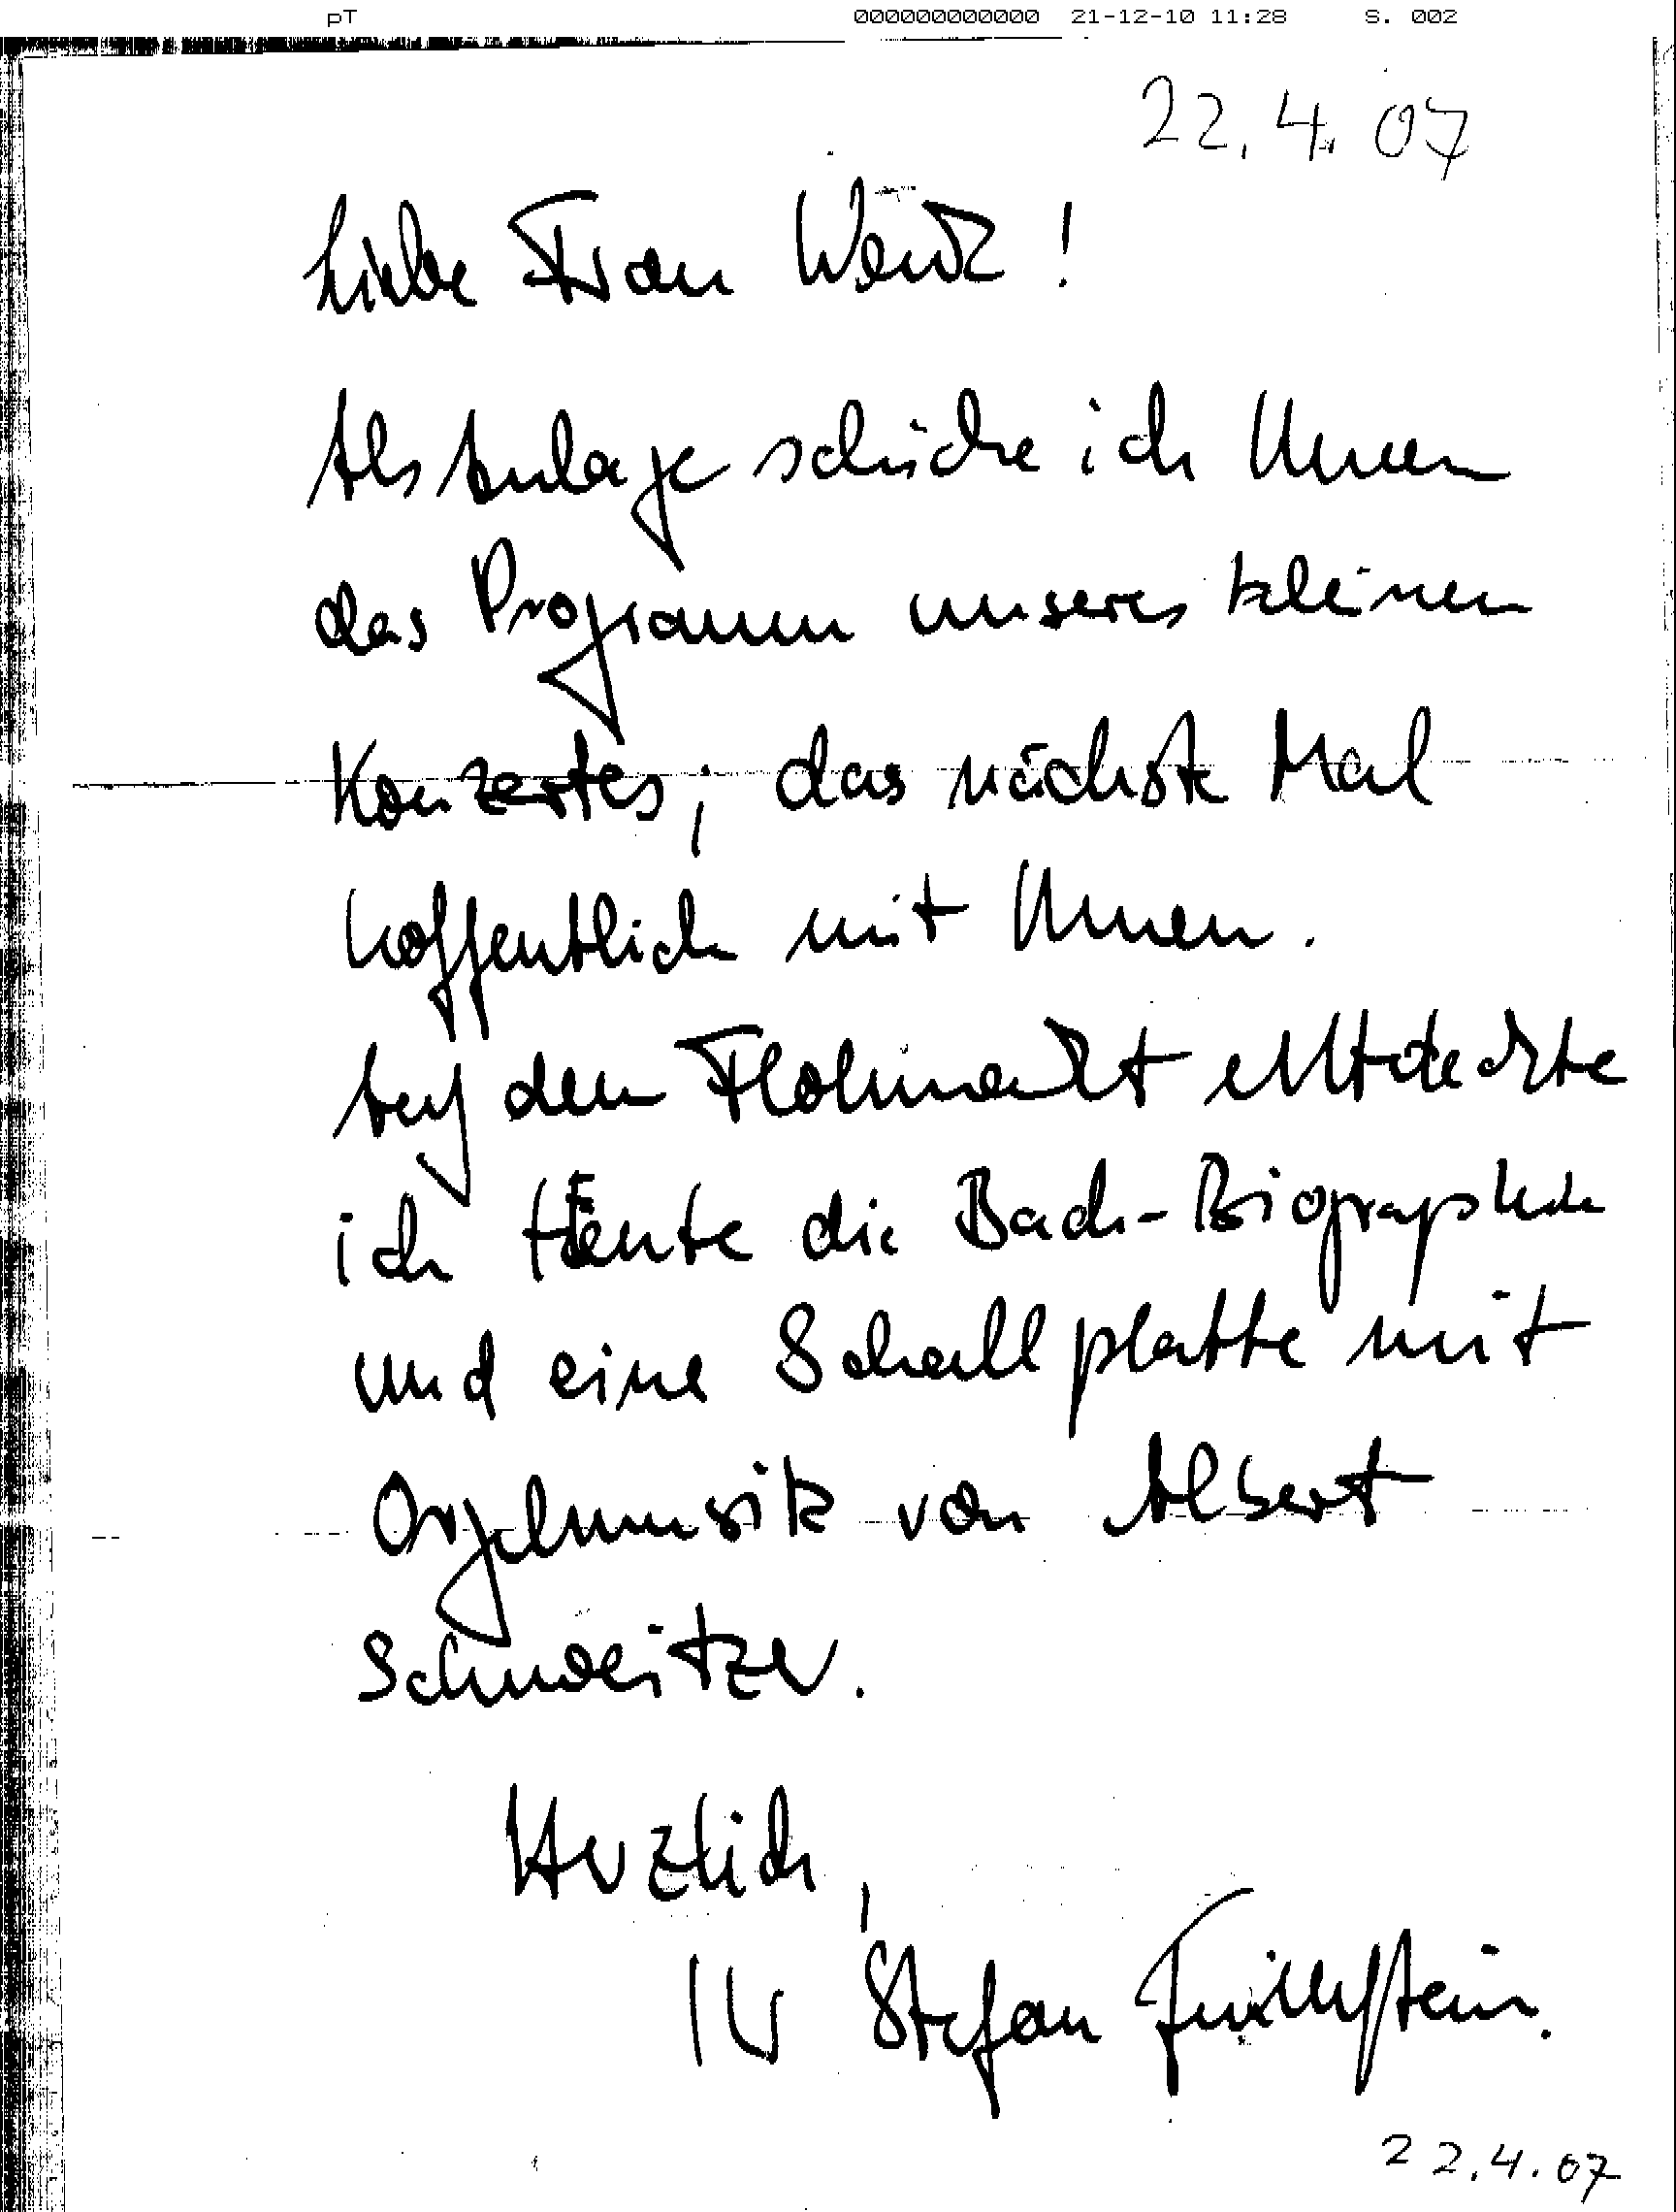 pT 000000000000 21-12-10 11:28 S. 002
22.4.07
Liebe Frau !
Als Anlage schicke ich Ihnen
das Programm unseres kleinen
Konzertes; das nächste Mal
hoffentlich mit Ihnen.
Auf dem Flohmarkt entdeckte
ich heute die Bach-Biographie
und eine Schallplatte mit
Orgelmusik von Albert
Schweitzer.
Herzlich,
Ihr Stefan
22.4.07